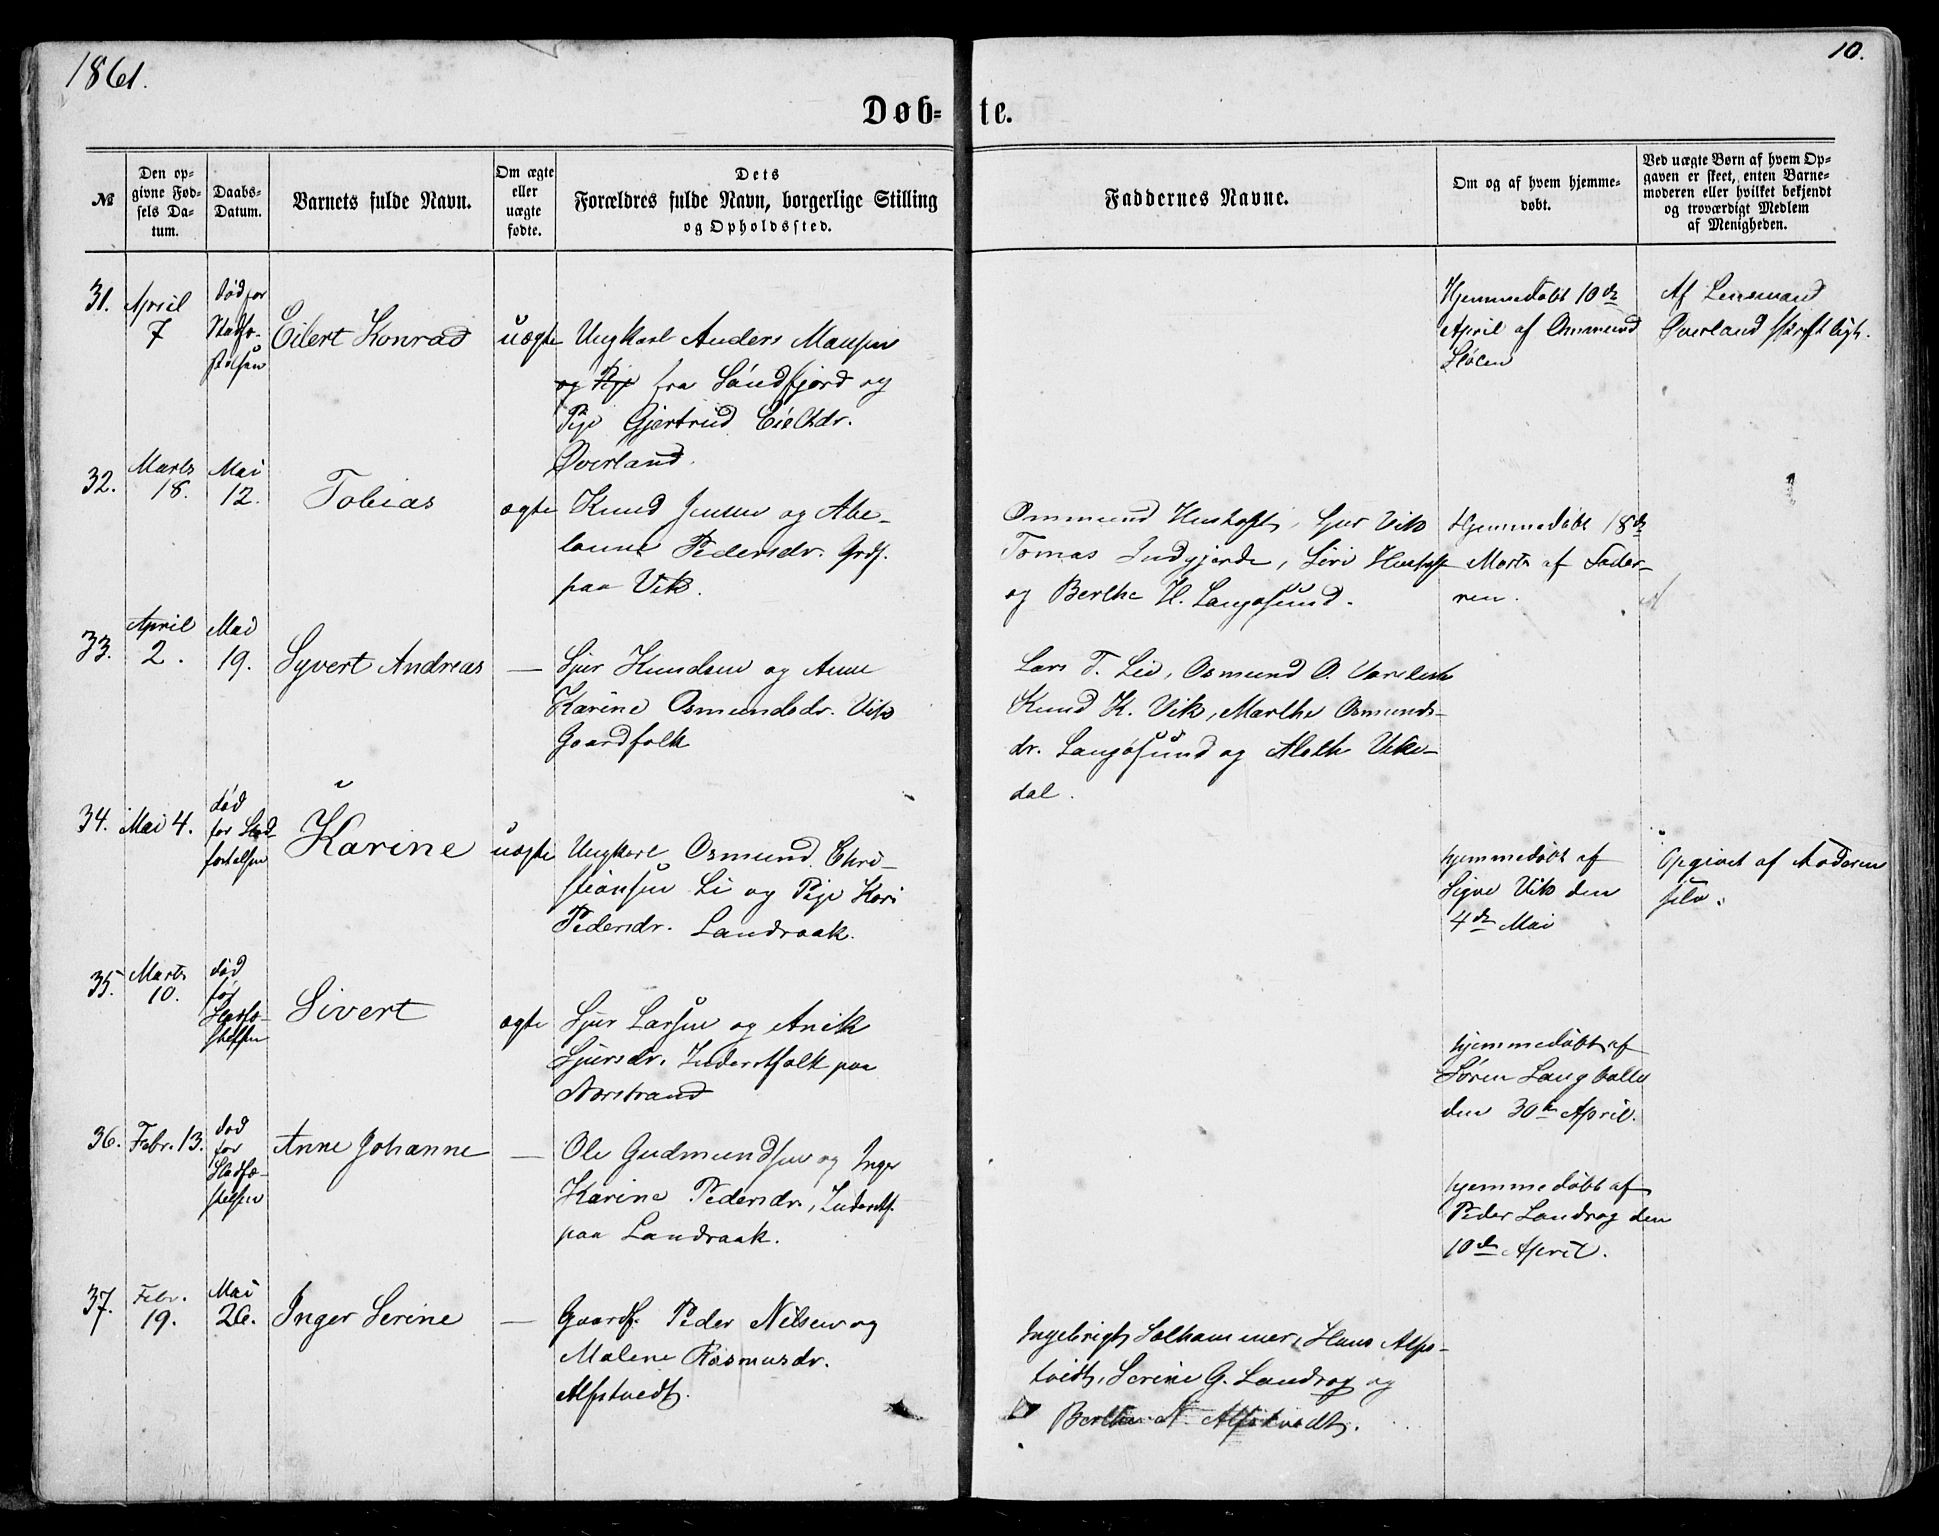 1861.
10.
Døb-te.
№
Den op-
givne Fød-
sels Da-
tum.
Daabs-
Datum.
Barnets fulde Navn.
Om ægte
eller
uægte
fødte.
Dets
Forældres fulde Navn, borgerlige Stilling
og Opholdssted.
Faddernes Navne.
Om og af hvem hjemme-
døbt.
Ved uægte Børn af hvem Op-
gaven er skeet, enten Barne-
moderen eller hvilket bekjendt
og troværdigt Medlem
af Menigheden.
31.
April
7
død før
Stadfæ-
stelsen
Eilert Konrad
uægte
Ungkarl Anders Monsen
og Pige fra Søndfjord og
Pige Gjertrud
Øverland.
Hjemmedøbt 10de
April af Ommund
Stølen
Af Lensmand
Øverland skriftligt.
32.
Marts
18.
Mai
12.
Tobias
ægte
Knud Jensen og Abe-
lonne Pedersdr. Grdf.
paa Vik.
Ommund Hustoft, Sjur Vik
Tomas Indgjerde, Siri Hustoft
og Berthe H. Langøsund.
Hjemmedøbt 18de
Marts af Fade-
ren.
33.
April
2.
Mai
19.
Syvert Andreas
—
Sjur Knudsen og Anne
Karine Osmundsdr. Vik
Gaardfolk
Lars T. Lie, Osmund O.
Knud K. Vik, Marthe Osmunds-
dr. Langøsund og Aleth Vike-
dal.
34.
Mai 4.
død
før Stad-
festelsen
Karine
uægte
Ungkarl Osmund Chri-
stiansen Li og Pige Kari
Pedersdr. Landraak.
hjemmedøbt af
Signe Vik den
4de Mai
Opgivet af Moderen
selv.
35.
Marts
10.
død
før
Stadfæ-
stelsen
Sivert
ægte
Sjur Larsen og Anek
Sjursdr. Inderstfolk paa
Norstrand
hjemmedøbt af
Søren Langballe
den 30te April.
36.
Febr. 13.
død
før
Stadfæ-
stelsen
Anne Johanne
—
Ole Gudmundsen og Inger
Karine Pedersdr., Inderstf.
paa Landraak.
hjemmedøbt af
Peder Landrag den
10de April.
37.
Febr.
19.
Mai
26.
Inger Serine
—
Gaardf. Peder Nilsen og
Malene Rasmusdr.
Alfstvedt.
Ingebrigt Solhammer, Hans Alfs-
tvedt, Serine G. Landrag og
Berthe N. Alfstvedt.